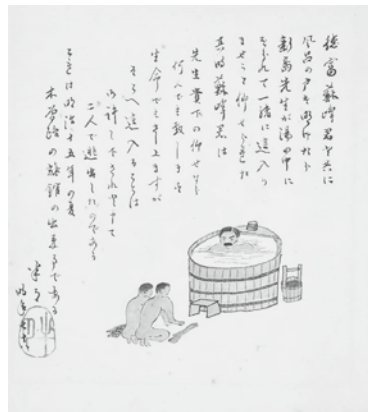 徳富蘇峰君と共に
風呂の戸を開けたら
新島先生が湯の中に
をられて一緒に這入つ
と仰せられた
其時蘇峰君は
先生貴下の仰せなら
何んでも致します
生命でもさし上ますが
それへ這入ることは
御許し下されと
二人で逃出したのである
ときは明治十五年の夏
木曽路の旅籠の出来事である